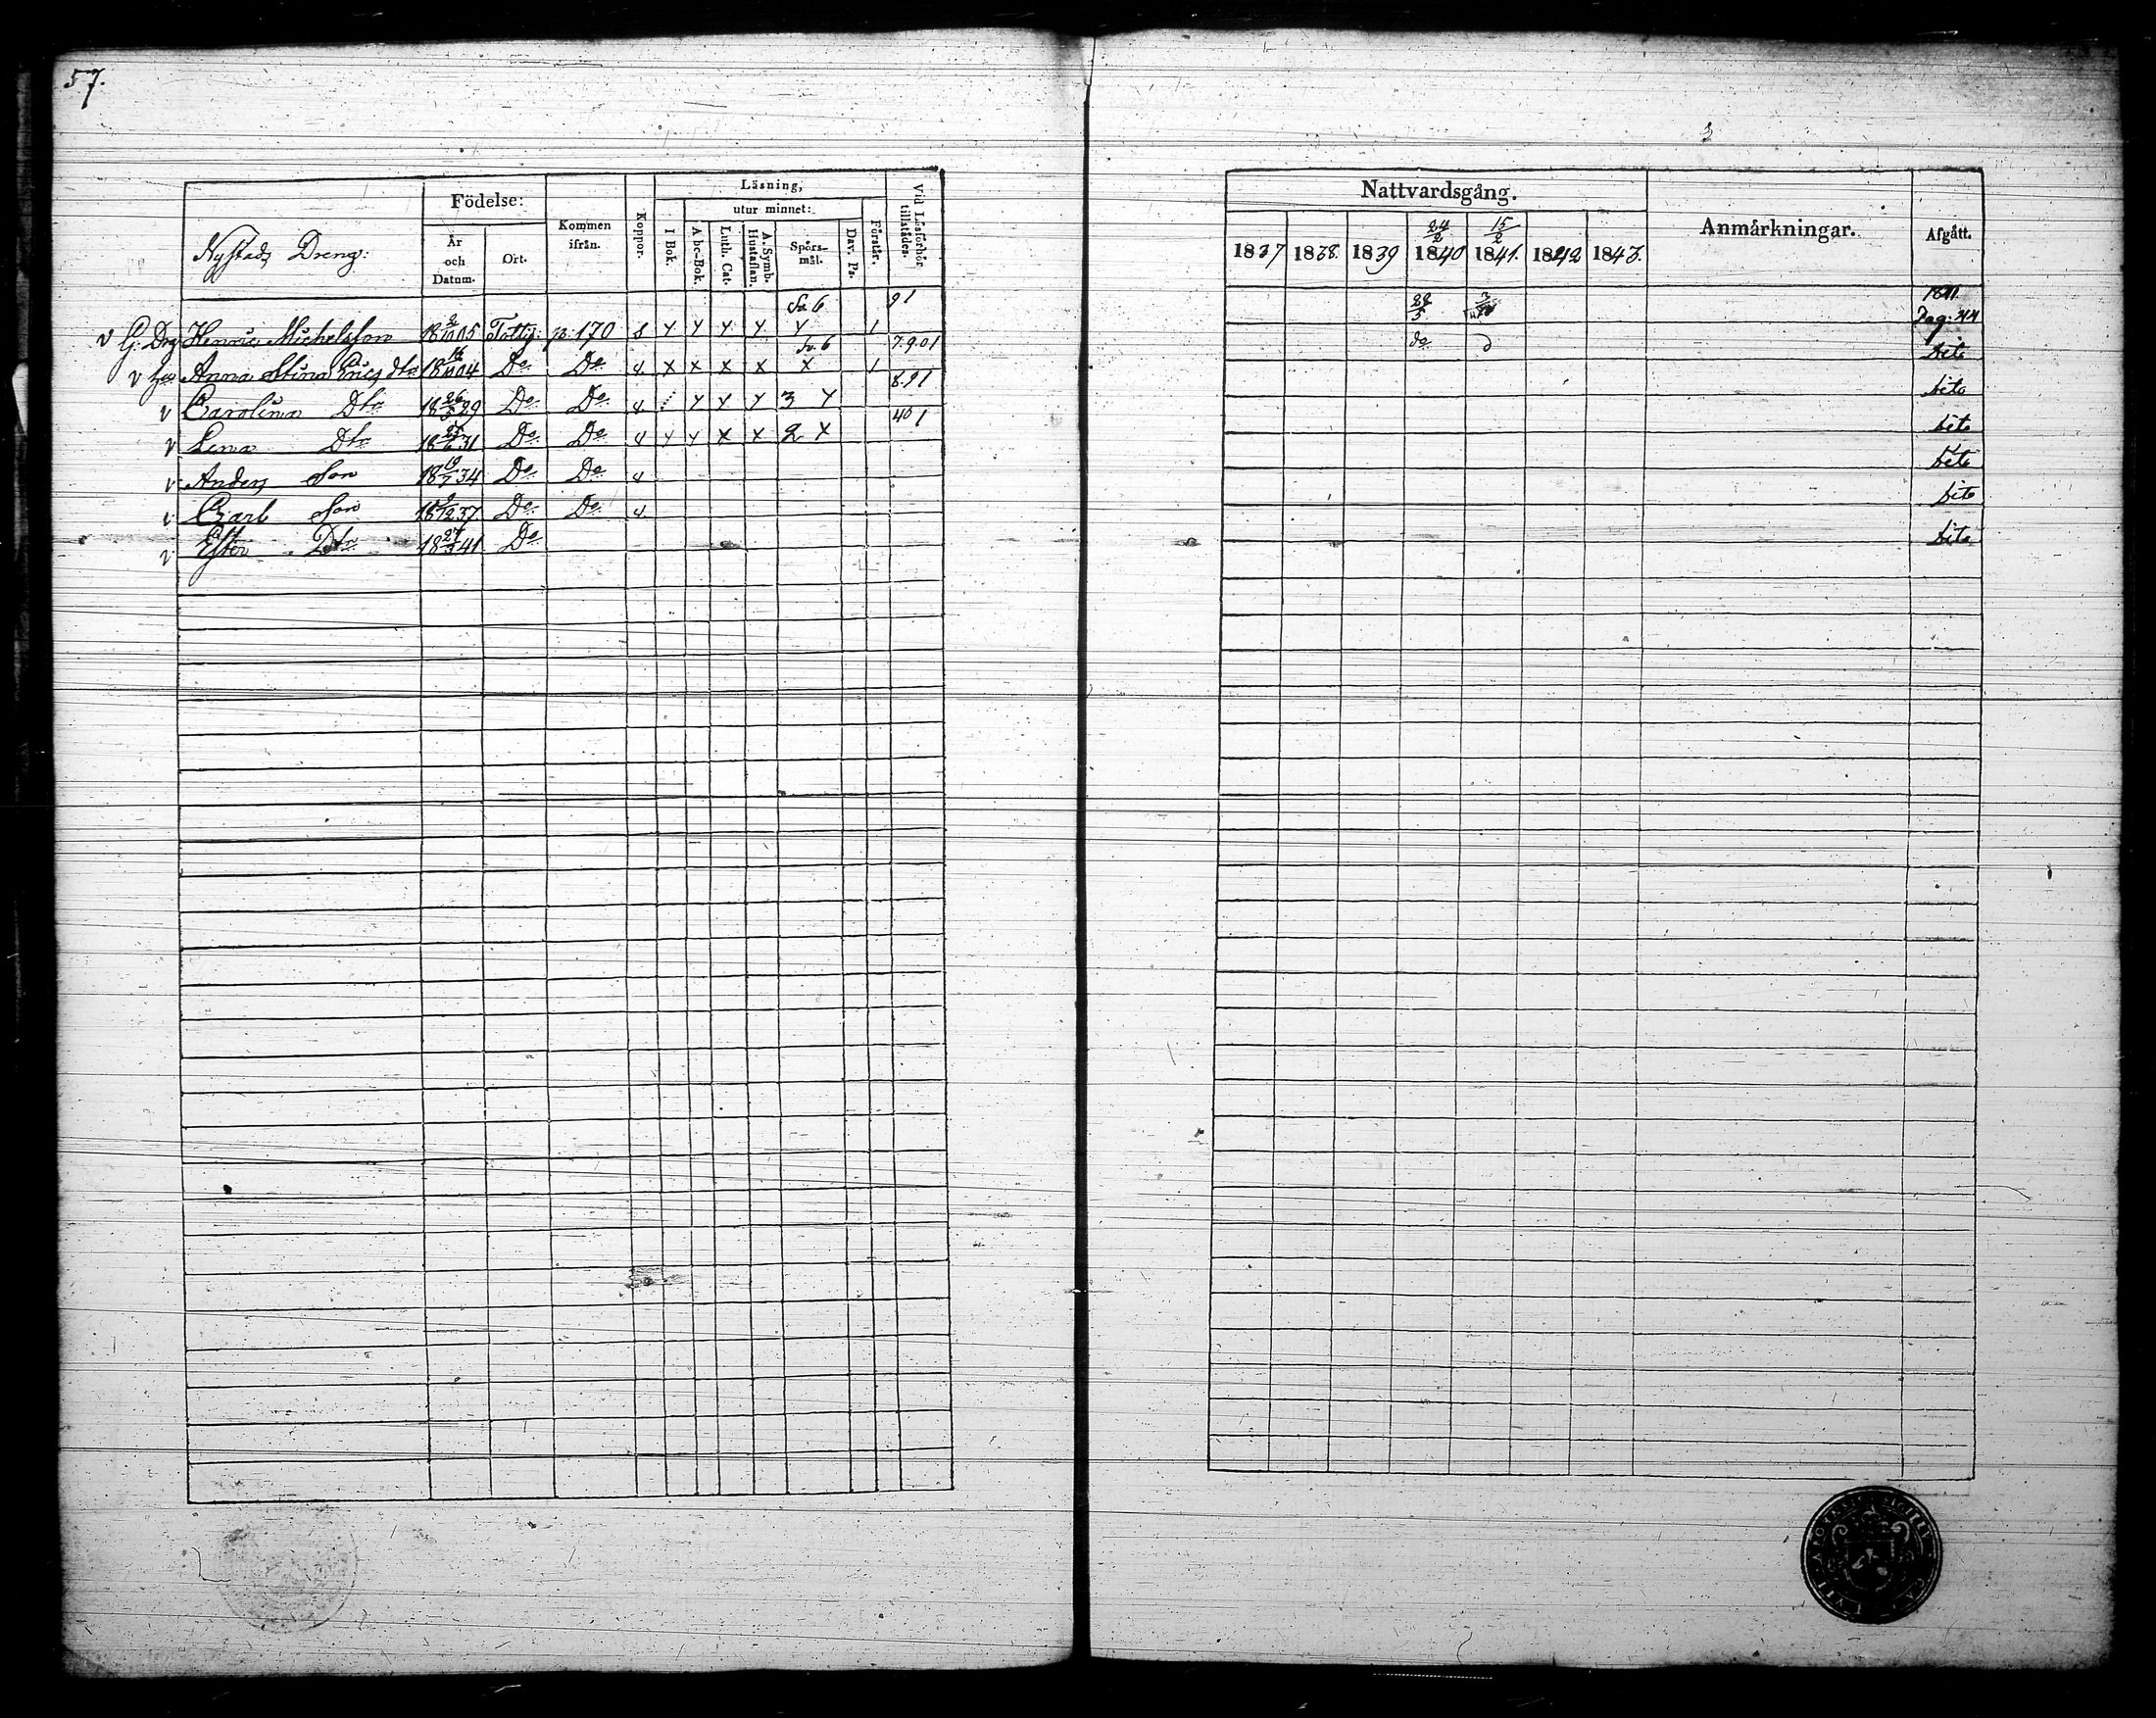 57.
Födelse:
Läsning,
utur minnet:
Nystads Dreng:
År och Datum.
Ort.
Kommen ifrån.
Koppor.
I Bok.
A bc-Bok.
Luth. Cat.
A. Symb. Hustaflan.
Spörsmål.
Dav. Ps.
Förstår.
Vid Läsförhör tillstådes.
Nattvardsgång.
Anmärkningar.
Afgått.
24/2 15/2
1837 1838. 1839 1840 1841. 1842 1843.
Sv. 6 91 28/5 1841
v G: Drg Henric Michelsson 18 2/10 05 Totty: p: 170 8 y y y y y 1 Pag: 44
Sv. 6 7.9.01 do d
v Anna Stina Erics dtr 18 16/10 04 Do Do 4 x x x x x 1 dito
8.91
v Carolina Dtr 18 26/5 29 Do Do 4 y y y 3 y dito
40 1
v Lena Dtr 18 /6 31 Do Do 4 y y x x 2 x dito
v Anders Son 18 19/7 34 Do Do 4 dito
v Carl Son 18 /12 37. Do Do 4 dito
v Ester Dtr 18 27/3 41 Do dito